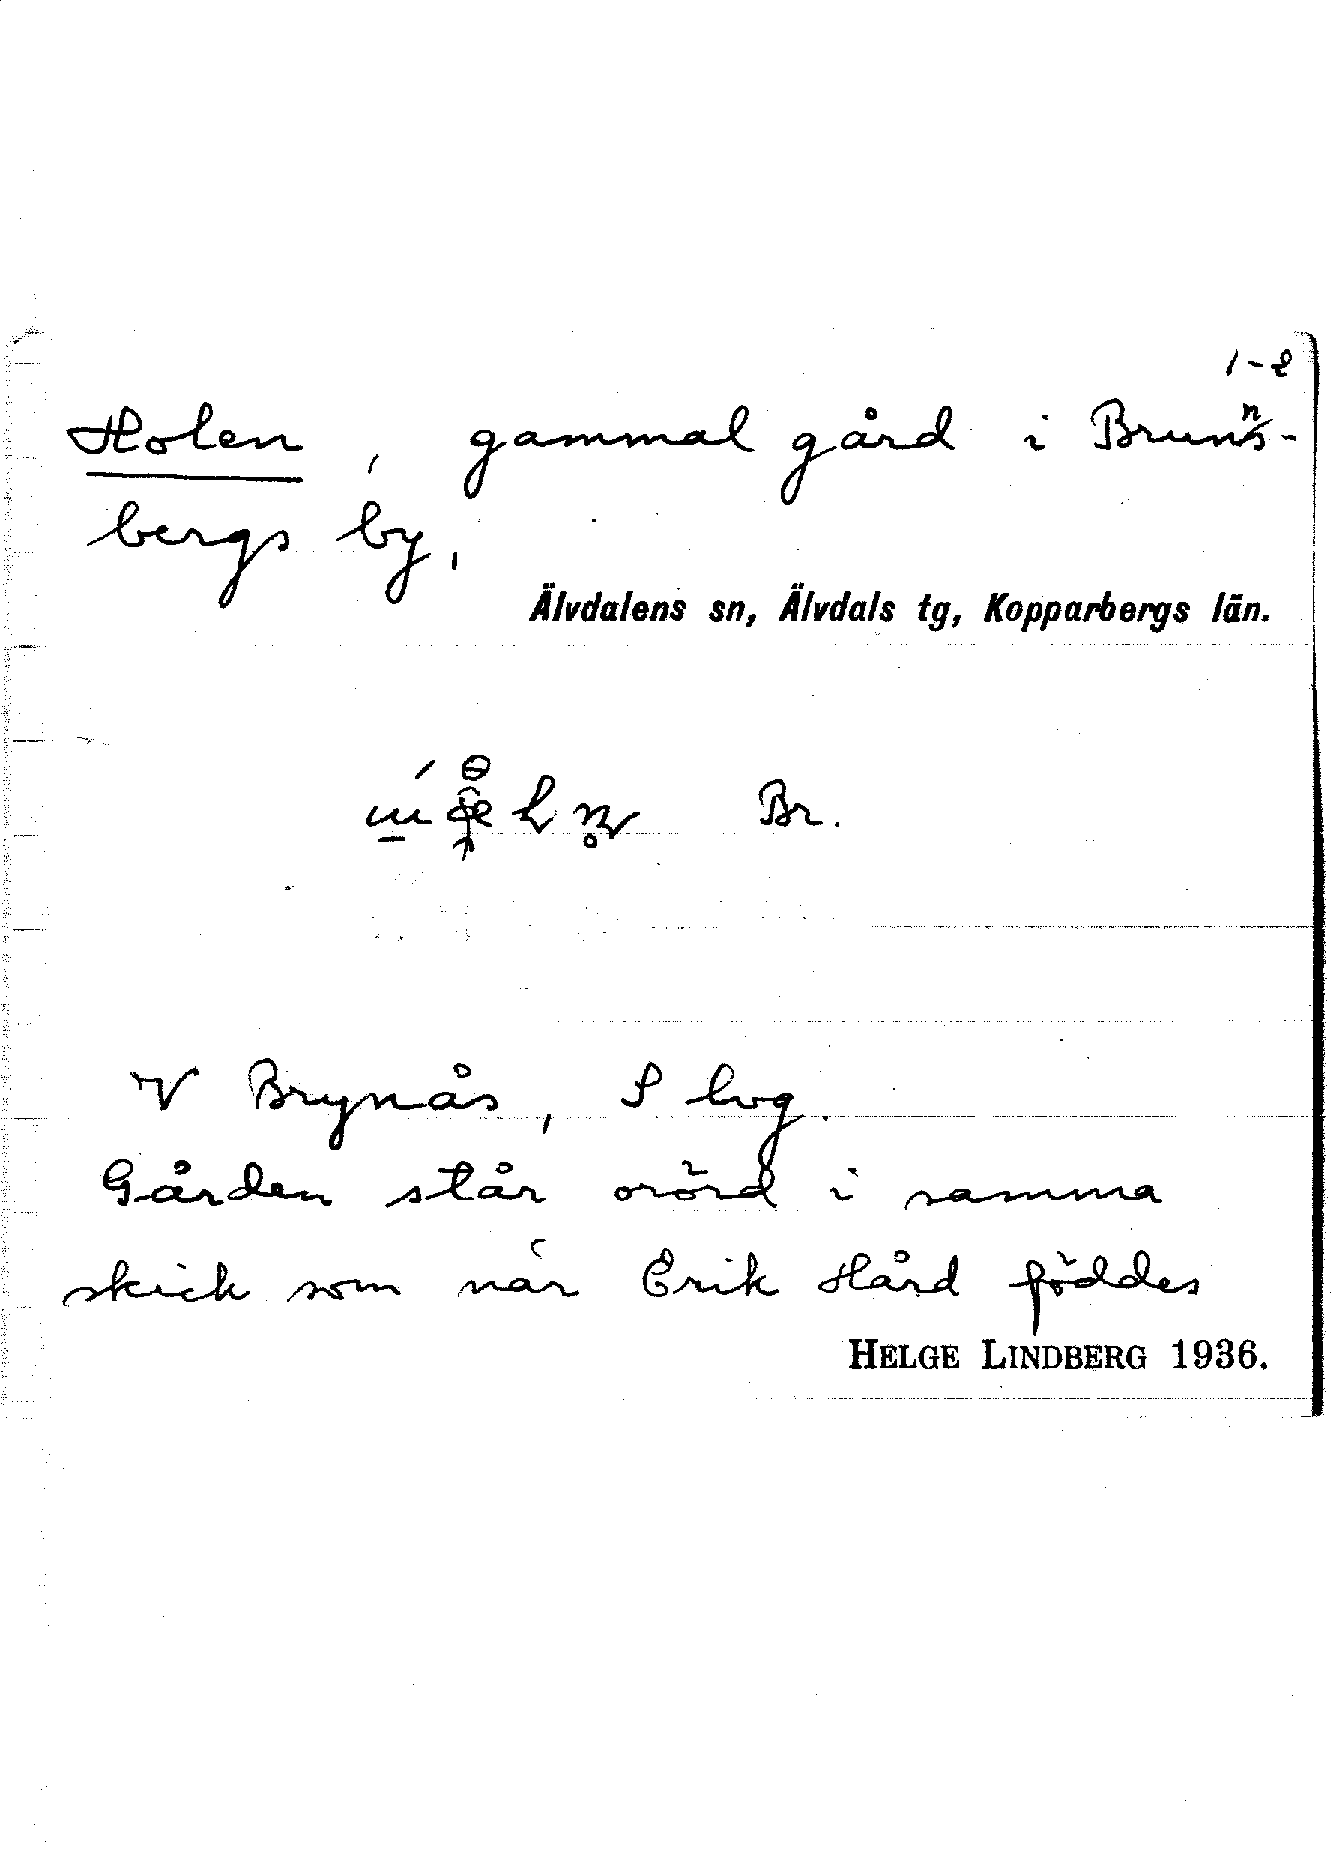 1-2
Holen, gammal gård i Brunns-
bergs by,
Älvdalens sn, Älvdals tg, Kopparbergs län.
Br.
V Brynås, S lvg.
Gården står orörd i samma
skick som när Erik Hård föddes
HELGE LINDBERG 1936.